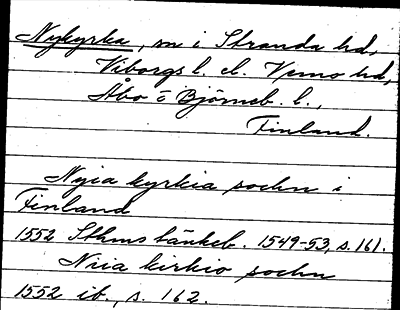 Nykyrka, sn i Stranda hd,
Viborgs l. el. Vemo hd,
Åbo o Björneb. l.,
Finland.
Nyia kyrkia sochn i
Finland
1552 Sthms tänkeb. 1549-53, s. 161.
Niia kirkio sochn
1552 ib., s. 162.